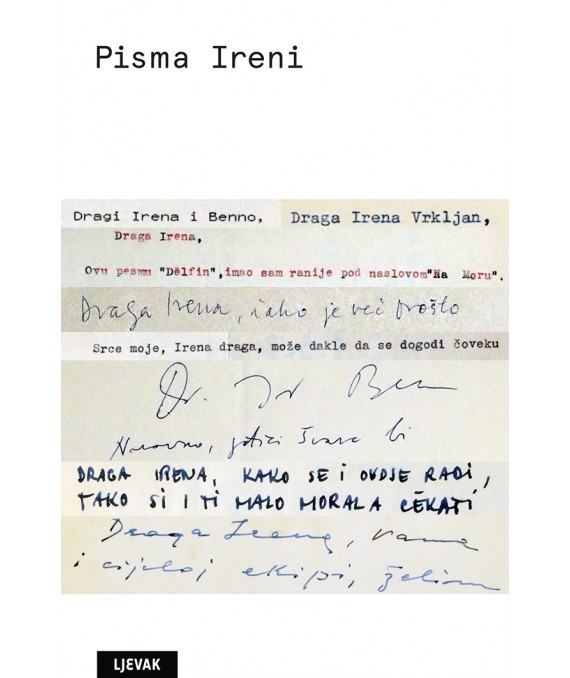 Pisma Ireni
Dragi Irena i Benno,
Draga Irena Vrkljan,
Draga Irena,
Ovu pesmu "Delfin", imao sam ranije pod naslovom "Na Moru".
Draga Irena, iako je već prošlo
Srce moje, Irena draga, može dakle da se dogodi čoveku
Dr. Ir Ben
Naravno, stvar bi
DRAGA IRENA, KAKO SE I OVDJE RADI,
TAKO SI I TI MALO MORALA ČEKATI
Draga Irena, Vama
i cijeloj ekipi, želim
LJEVAK